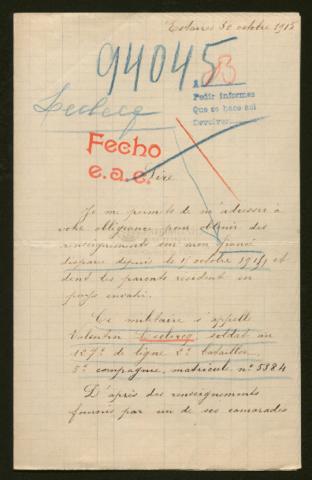 Estaires 30 octobre 1915
94045
83
A
Pedir informes
Que se hace así
Devolver
Leclecq
Fecho
e.a.c.
Sire
Je me permets de m'adresser à
votre obligeance pour obtenir des
renseignements sur mon fiancé
disparu depuis le 1er octobre 1914, et
dont les parents résident en
pays envahi.
Ce militaire s'appelle
Valentin Leclercq, soldat au
127e de ligne 2e bataillon,
5e compagnie, matricule no 5384
D'après des renseignements
fournis par un de ses camarades